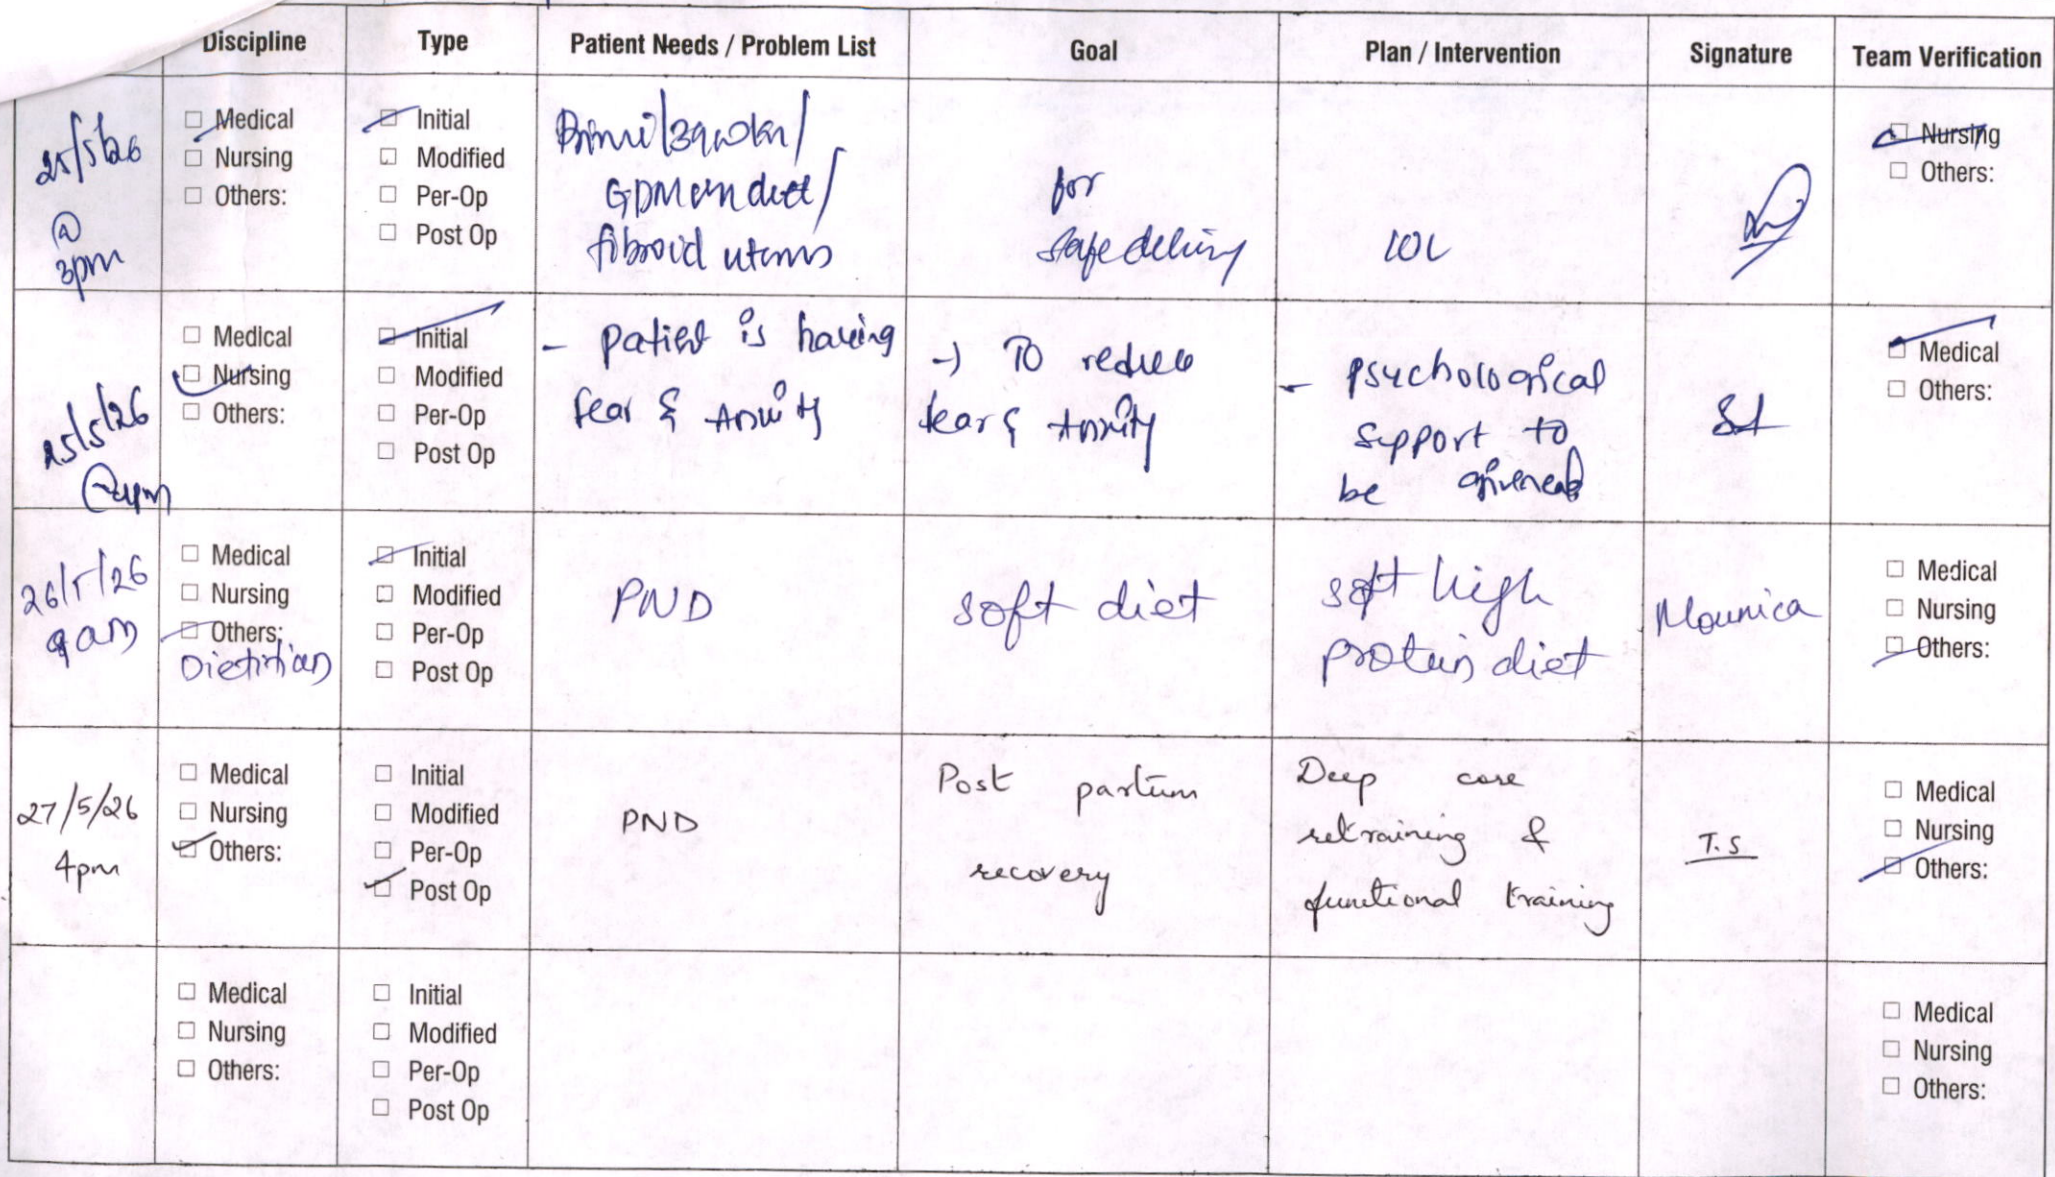 Discipline Type Patient Needs / Problem List Goal Plan / Intervention Signature Team Verification
25/5/26
@
3pm
Medical
Nursing
Others:
Initial
Modified
Per-Op
Post Op
Primi/39wkn/
GDM on diet/
fibroid uterus
for
safe delivery
IOL
Nursing
Others:
25/5/26
@4pm
Medical
Nursing
Others:
Initial
Modified
Per-Op
Post Op
- Patient is having
fear &
→ To reduce
fear &
- psychological
support to
be
Medical
Others:
26/5/26
9am
Medical
Nursing
Others:
Dietitian
Initial
Modified
Per-Op
Post Op
PND
soft diet
soft high
protein diet
Mounica
Medical
Nursing
Others:
27/5/26
4pm
Medical
Nursing
Others:
Initial
Modified
Per-Op
Post Op
PND
Post partum
recovery
Deep core
retraining &
functional training
T.S
Medical
Nursing
Others:
Medical
Nursing
Others:
Initial
Modified
Per-Op
Post Op
Medical
Nursing
Others: